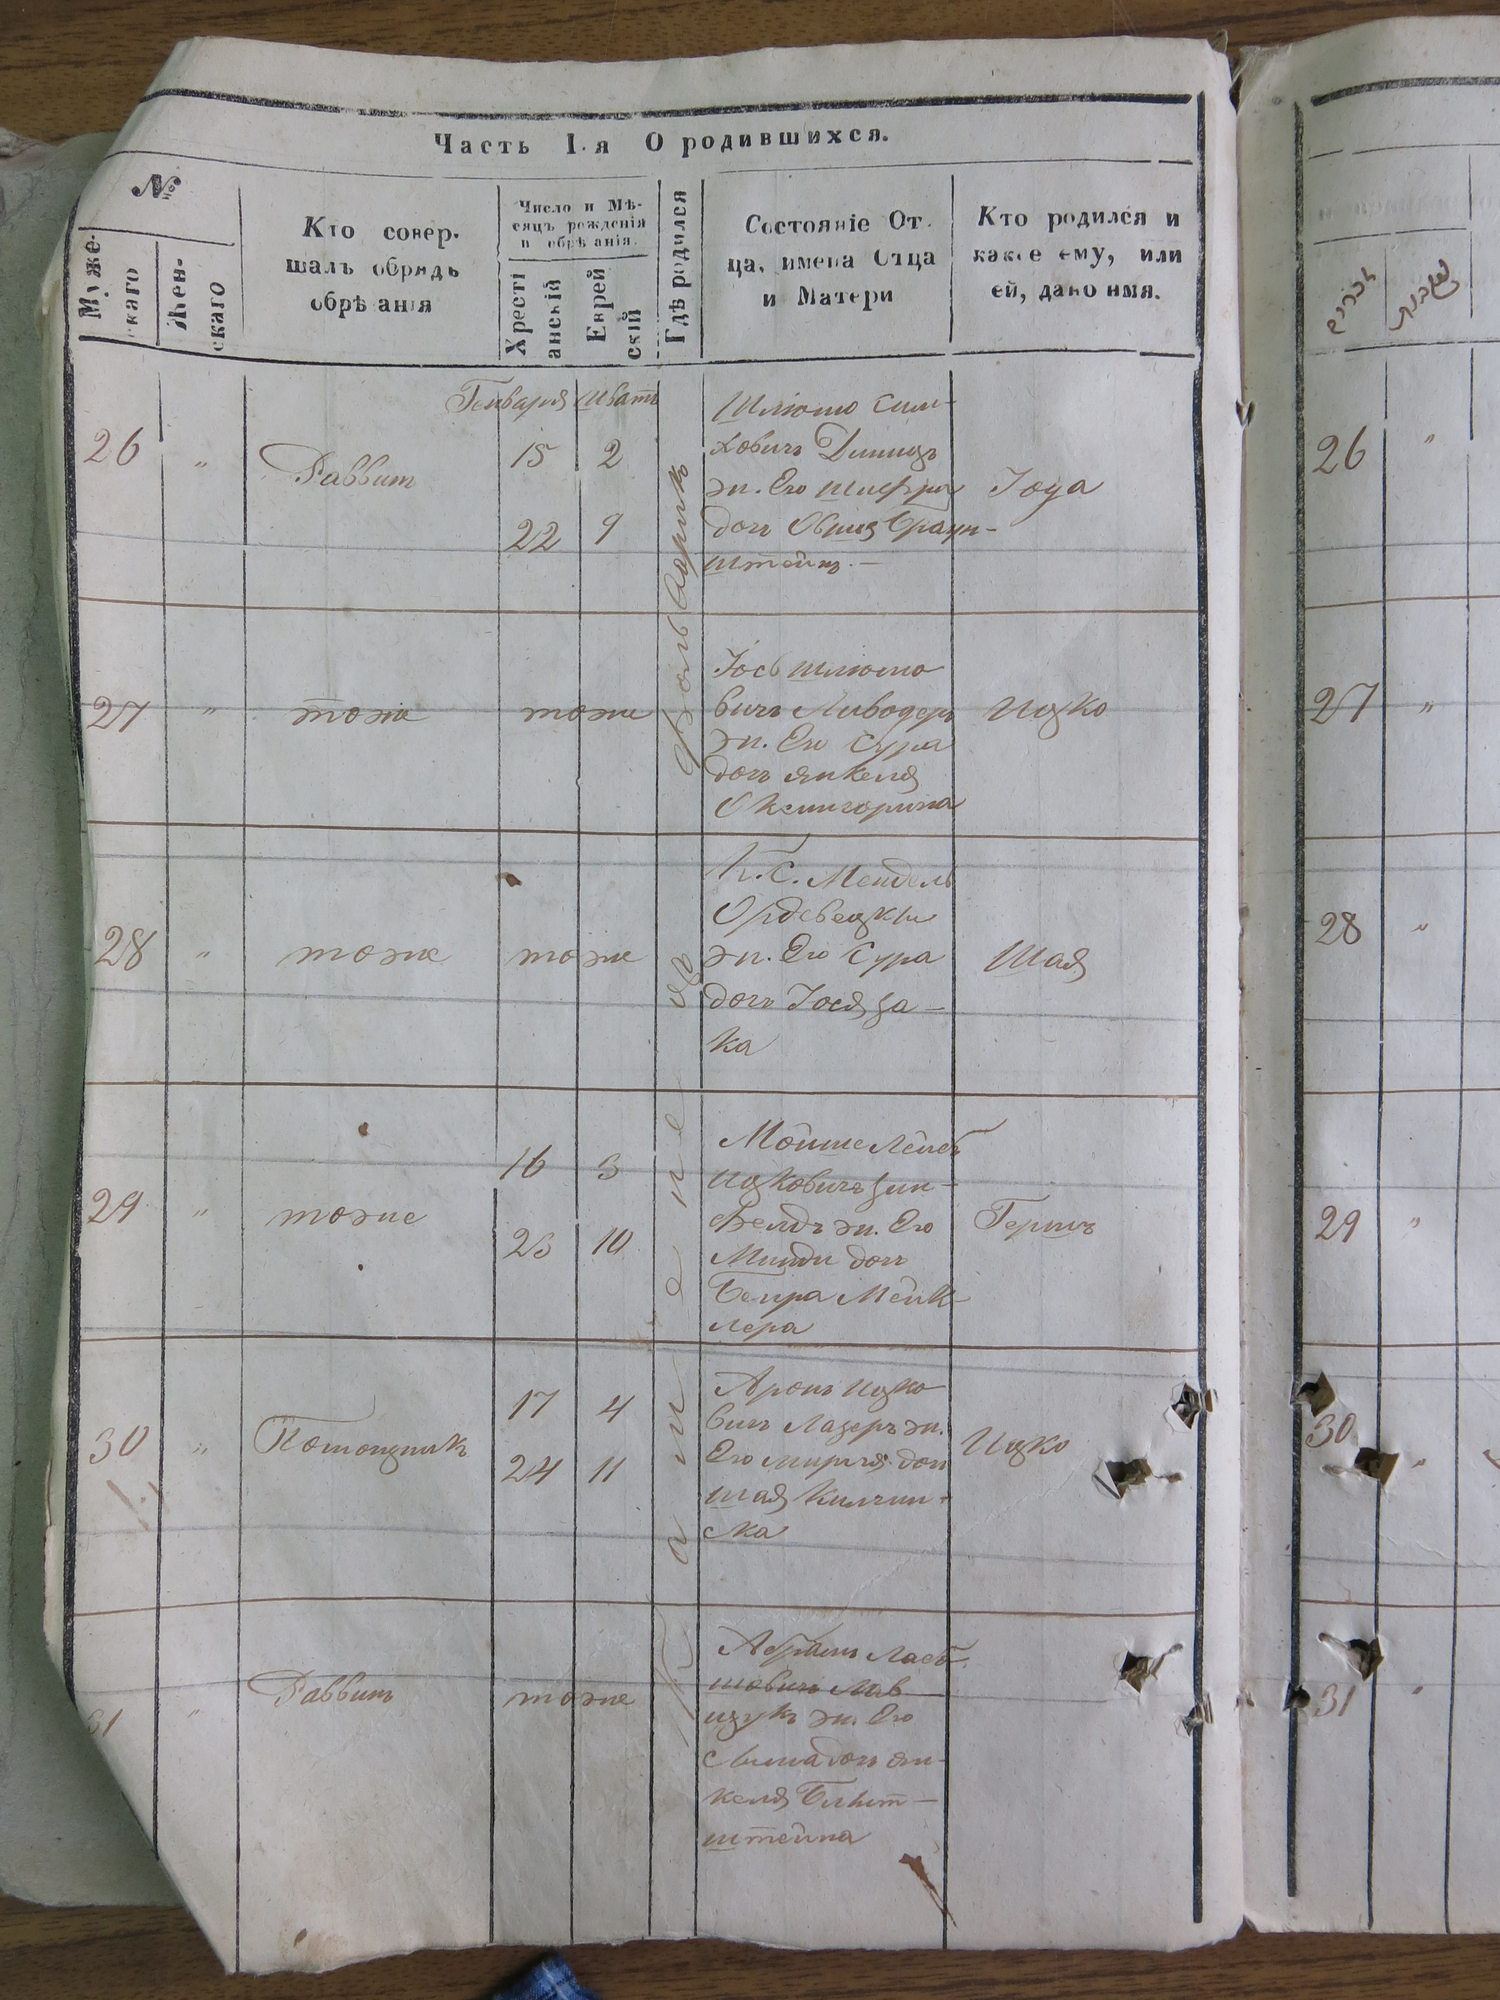 Часть I-я О родившихся.
№
Муже-
скаго
Жен-
скаго
Кто совер-
шалъ обрядъ
обрѣзанія
Число и Мѣ-
сяцъ рожденія
и обрѣзанія.
Христі
анскій
Еврей
скій
Гдѣ родился
Состояніе От-
ца, имена Отца
и Матери
Кто родился и
какое ему, или
ей, дано имя.
Генваря Шватъ
26 " Раввин 15 2
22 9
Шлiомо Сим-
ховичъ
эн. Его Шифра
доч Овшiя Браун-
штейн. —
Iоуа
27 " тоже тоже
Iось Шлiомо
вичъ Ливодеръ
эн. Его Сура
доч Янкеля
Ицко
28 " тоже тоже
К. С. Мендель
эн. Его Сура
доч Iося За-
ка
Шая
29 " тоже 16 3
23 10
Мойше Лейбъ
Ицковичъ Зин-
фельдъ эн. Его
Минди доч
Беира Мекк-
лера
Гершъ
30 " Помощникъ 17 4
24 11
Аронъ Ицко
вичъ Лазеръ эн.
Его Мирля доч
Шая Килчин-
ска
Ицко
31 " Раввинъ тоже
Абрамъ Лейб
эн. Его
доч Ян-
келя Блит-
штейна
Каменецъ Фольварикъ
זכרים
נקבות
26 "
27 "
28 "
29 "
30 "
31 "